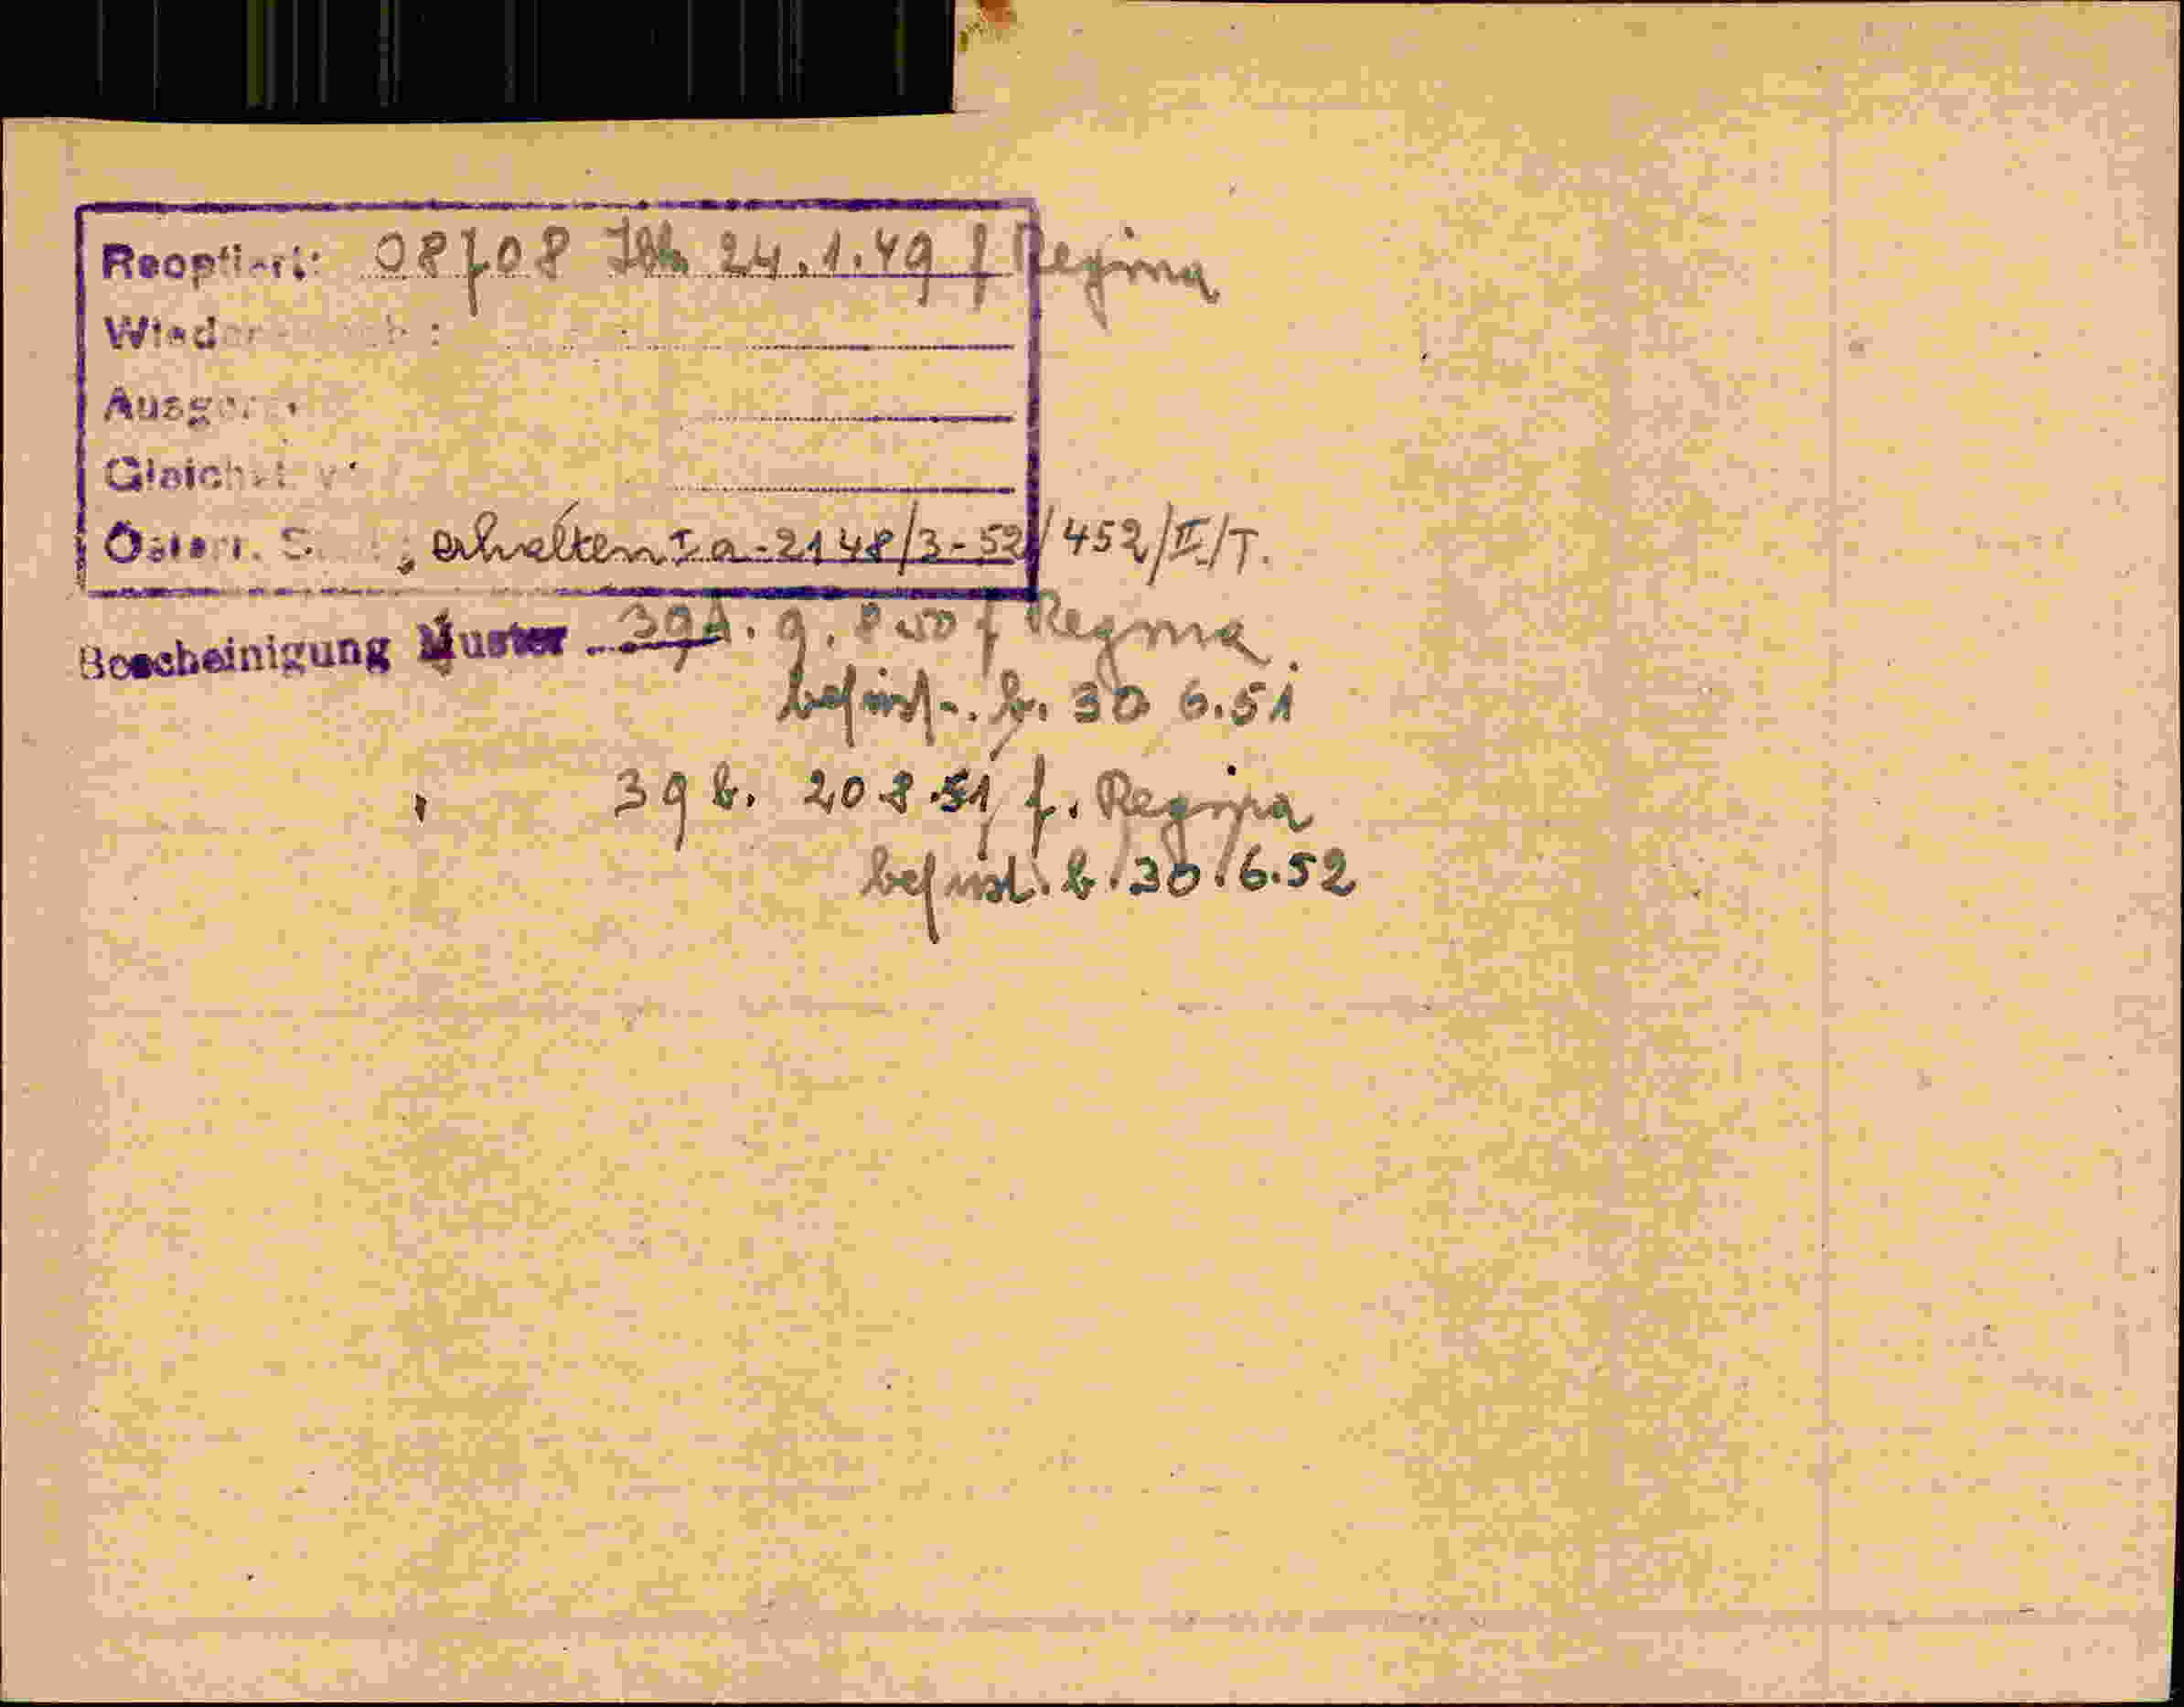 Reoptiert: 08708 Ibk 24.1.49 f Regina
Österr. S. erhalten I a-2148/3-52/452/II/T.
Bescheinigung Muster 39A. 9. 8 50 f Regina.
befrist. b. 30 6.51
" 39 b. 20.8.51 f. Regina
befrist. b. 30.6.52